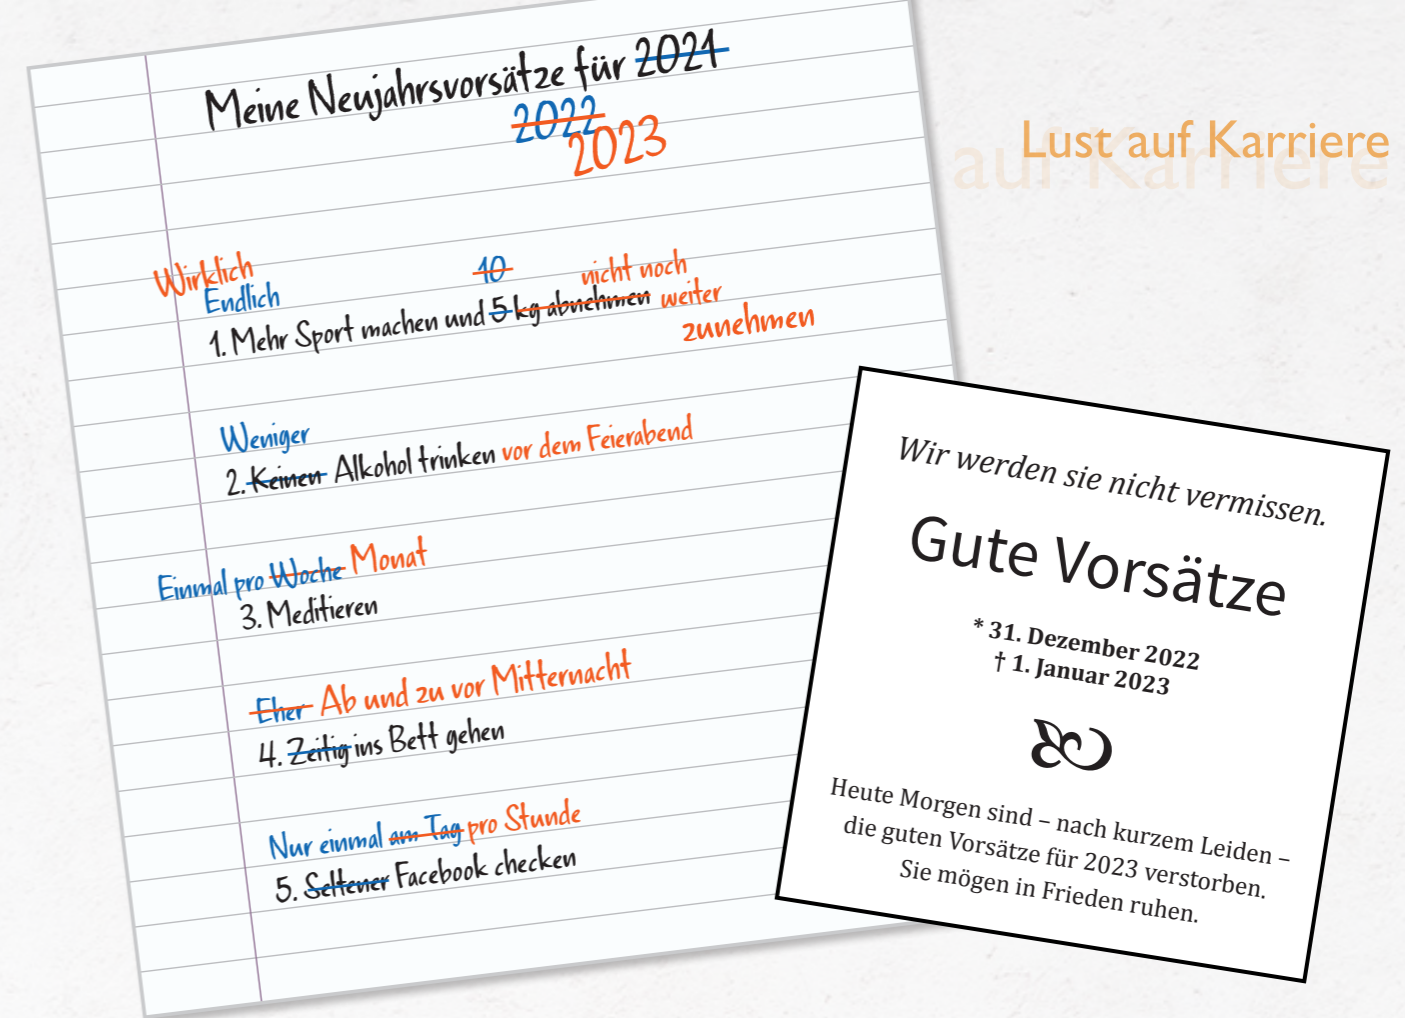 Meine Neujahrsvorsätze für 2021
2022
2023
Lust auf Karriere
auf Karriere
Wirklich
Endlich
10
nicht noch
1. Mehr Sport machen und 5 kg abnehmen weiter
zunehmen
Weniger
2. Keinen Alkohol trinken vor dem Feierabend
Einmal pro Woche Monat
3. Meditieren
Eher Ab und zu vor Mitternacht
4. Zeitig ins Bett gehen
Nur einmal am Tag pro Stunde
5. Seltener Facebook checken
Wir werden sie nicht vermissen.
Gute Vorsätze
* 31. Dezember 2022
† 1. Januar 2023
Heute Morgen sind – nach kurzem Leiden –
die guten Vorsätze für 2023 verstorben.
Sie mögen in Frieden ruhen.